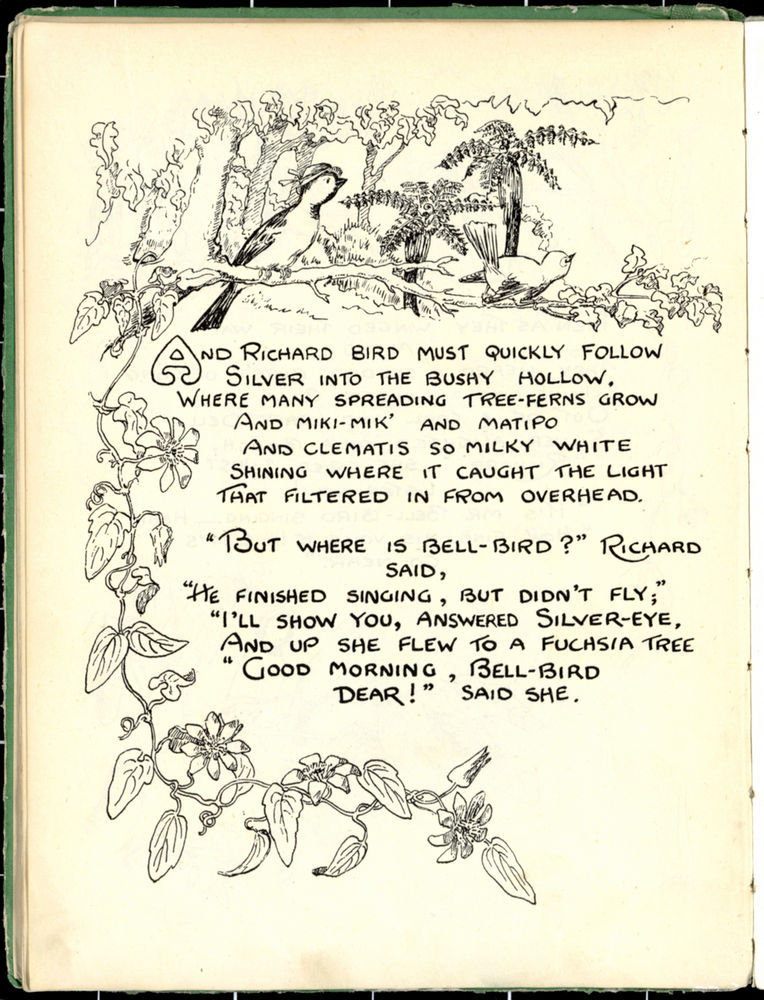 AND RICHARD BIRD MUST QUICKLY FOLLOW
SILVER INTO THE BUSHY HOLLOW,
WHERE MANY SPREADING TREE-FERNS GROW
AND MIKI-MIK' AND MATIPO
AND CLEMATIS SO MILKY WHITE
SHINING WHERE IT CAUGHT THE LIGHT
THAT FILTERED IN FROM OVERHEAD.
"BUT WHERE IS BELL-BIRD?" RICHARD
SAID,
"HE FINISHED SINGING, BUT DIDN'T FLY;"
"I'LL SHOW YOU, ANSWERED SILVER-EYE,
AND UP SHE FLEW TO A FUCHSIA TREE
"GOOD MORNING, BELL-BIRD
DEAR!" SAID SHE.